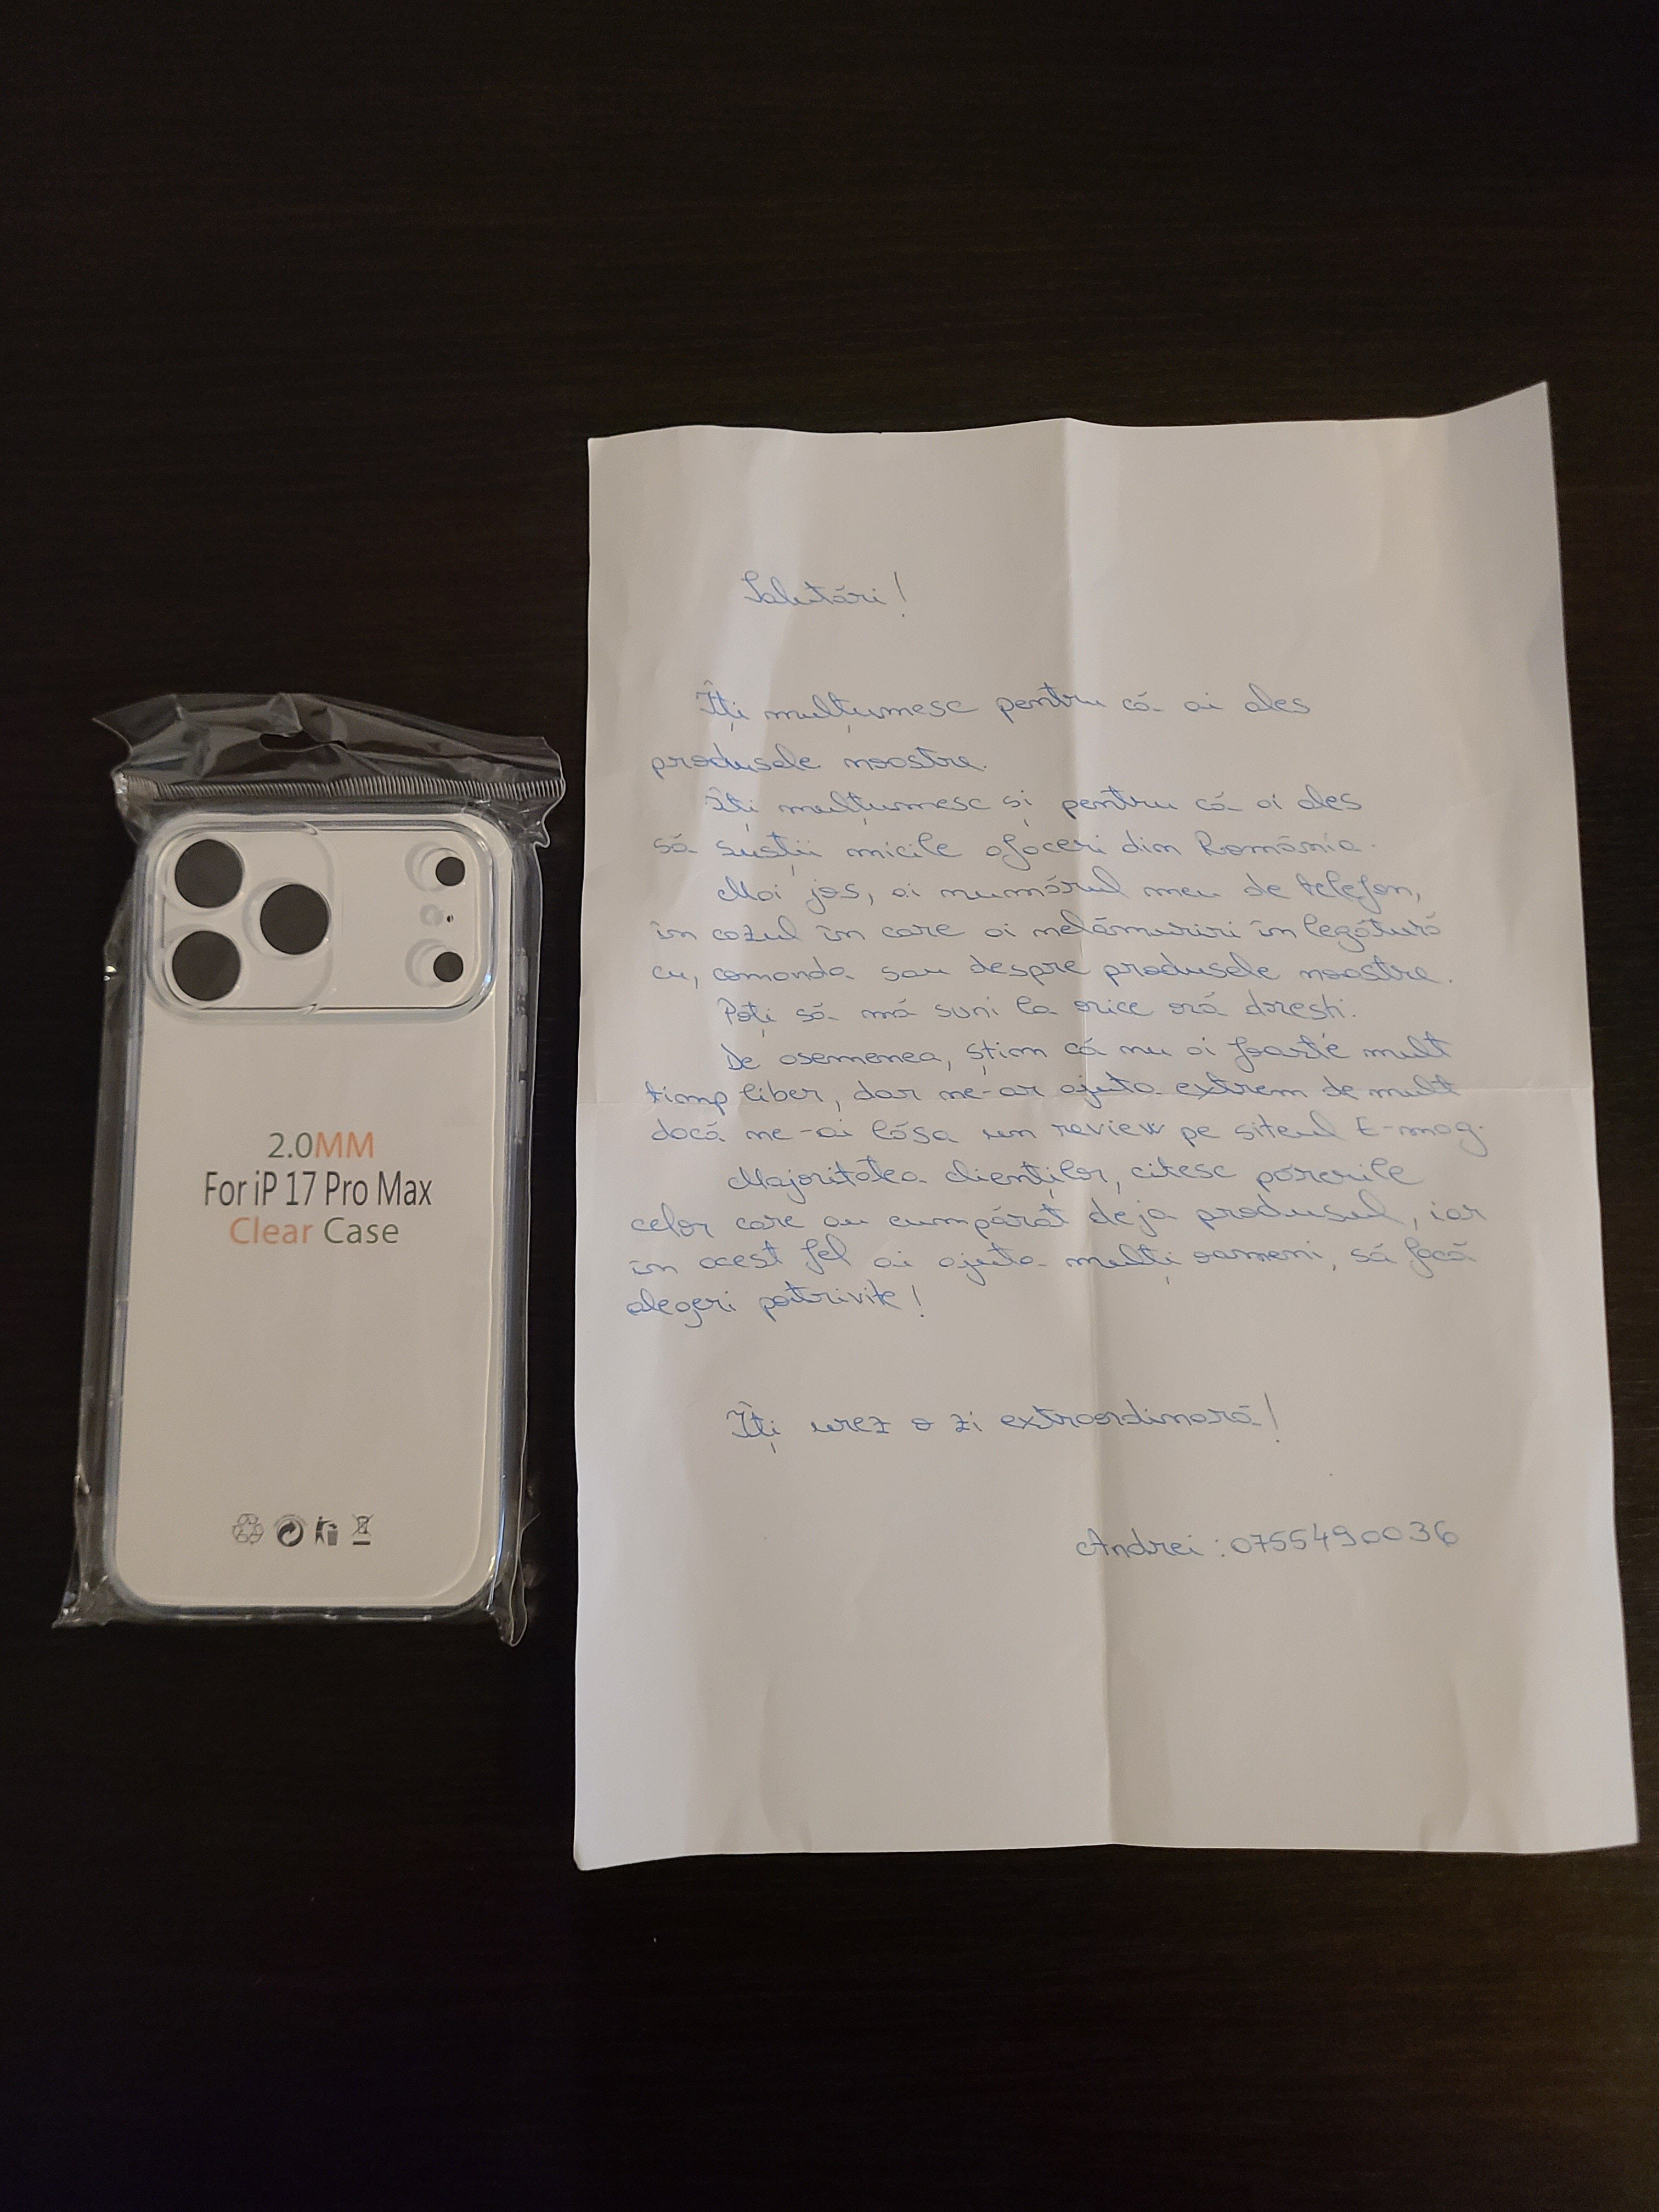 2.0MM
For iP 17 Pro Max
Clear Case
Salutări!
Îți mulțumesc pentru că ai ales
produsele noastre.
Îți mulțumesc și pentru că ai ales
să susții micile afaceri din România.
Mai jos, ai numărul meu de telefon,
în cazul în care ai nelămuriri în legătură
cu, comanda sau despre produsele noastre.
Poți să mă suni la orice oră dorești.
De asemenea, știm că nu ai foarte mult
timp liber, dar ne-ar ajuta extrem de mult
dacă ne-ai lăsa un review pe siteul E-mag.
Majoritatea clienților, citesc părerile
celor care au cumpărat deja produsul, iar
în acest fel ai ajuta mulți oameni, să facă
alegeri potrivite!
Îți urez o zi extraordinară!
Andrei: 0755490036